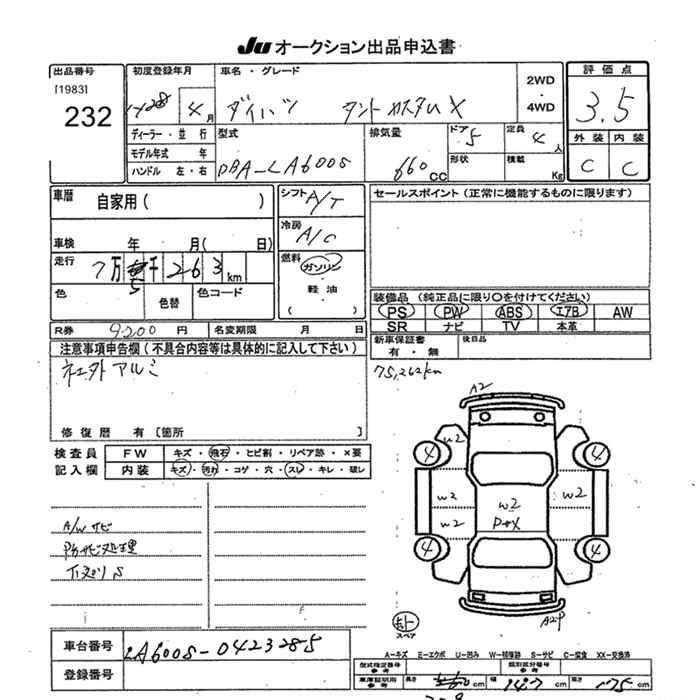 JU オークション出品申込書
出品番号
[1983]
232
初度登録年月
28 4月
車名・グレード
ダイハツ タントカスタムX
2WD
・
4WD
評価点
3.5
外装 内装
C C
ディーラー・並行
モデル年式 年
ハンドル 左・右
型式
DBA-LA600S
排気量
660 CC
ドア
5
定員
4人
形状
積載
Kg
車歴
自家用( )
車検 年 月( 日)
走行
7万5千263km
色
色替
色コード
シフト A/T
冷房
A/C
燃料
ガソリン
軽油
( )
セールスポイント(正常に機能するものに限ります)
装備品(純正品に限り○を付けてください)
PS PW ABS エアB AW
SR ナビ TV 本革
R券 9200円
名変期限 月 日
新車保証書
有・無
後日品
注意事項申告欄(不具合内容等は具体的に記入して下さい)
社外アルミ
75,262km
修復歴 有〔箇所 〕
検査員
記入欄
FW キズ・飛石・ヒビ割・リペア跡・×要
内装 キズ・汚れ・コゲ・穴・スレ・キレ・破レ
A/Wサビ
防サビ処理
下廻りS
A2
W2
4 4
W2 W2 W2
W2
4 4
A2P
スペア
車台番号 LA600S-0423285
登録番号
A-キズ E-エクボ U-凹み W-補修跡 S-サビ C-腐食 XX-交換済
型式指定番号
参考
類別区分番号
参考
車庫証明用
参考
長さ cm 幅 147cm 高さ 175cm